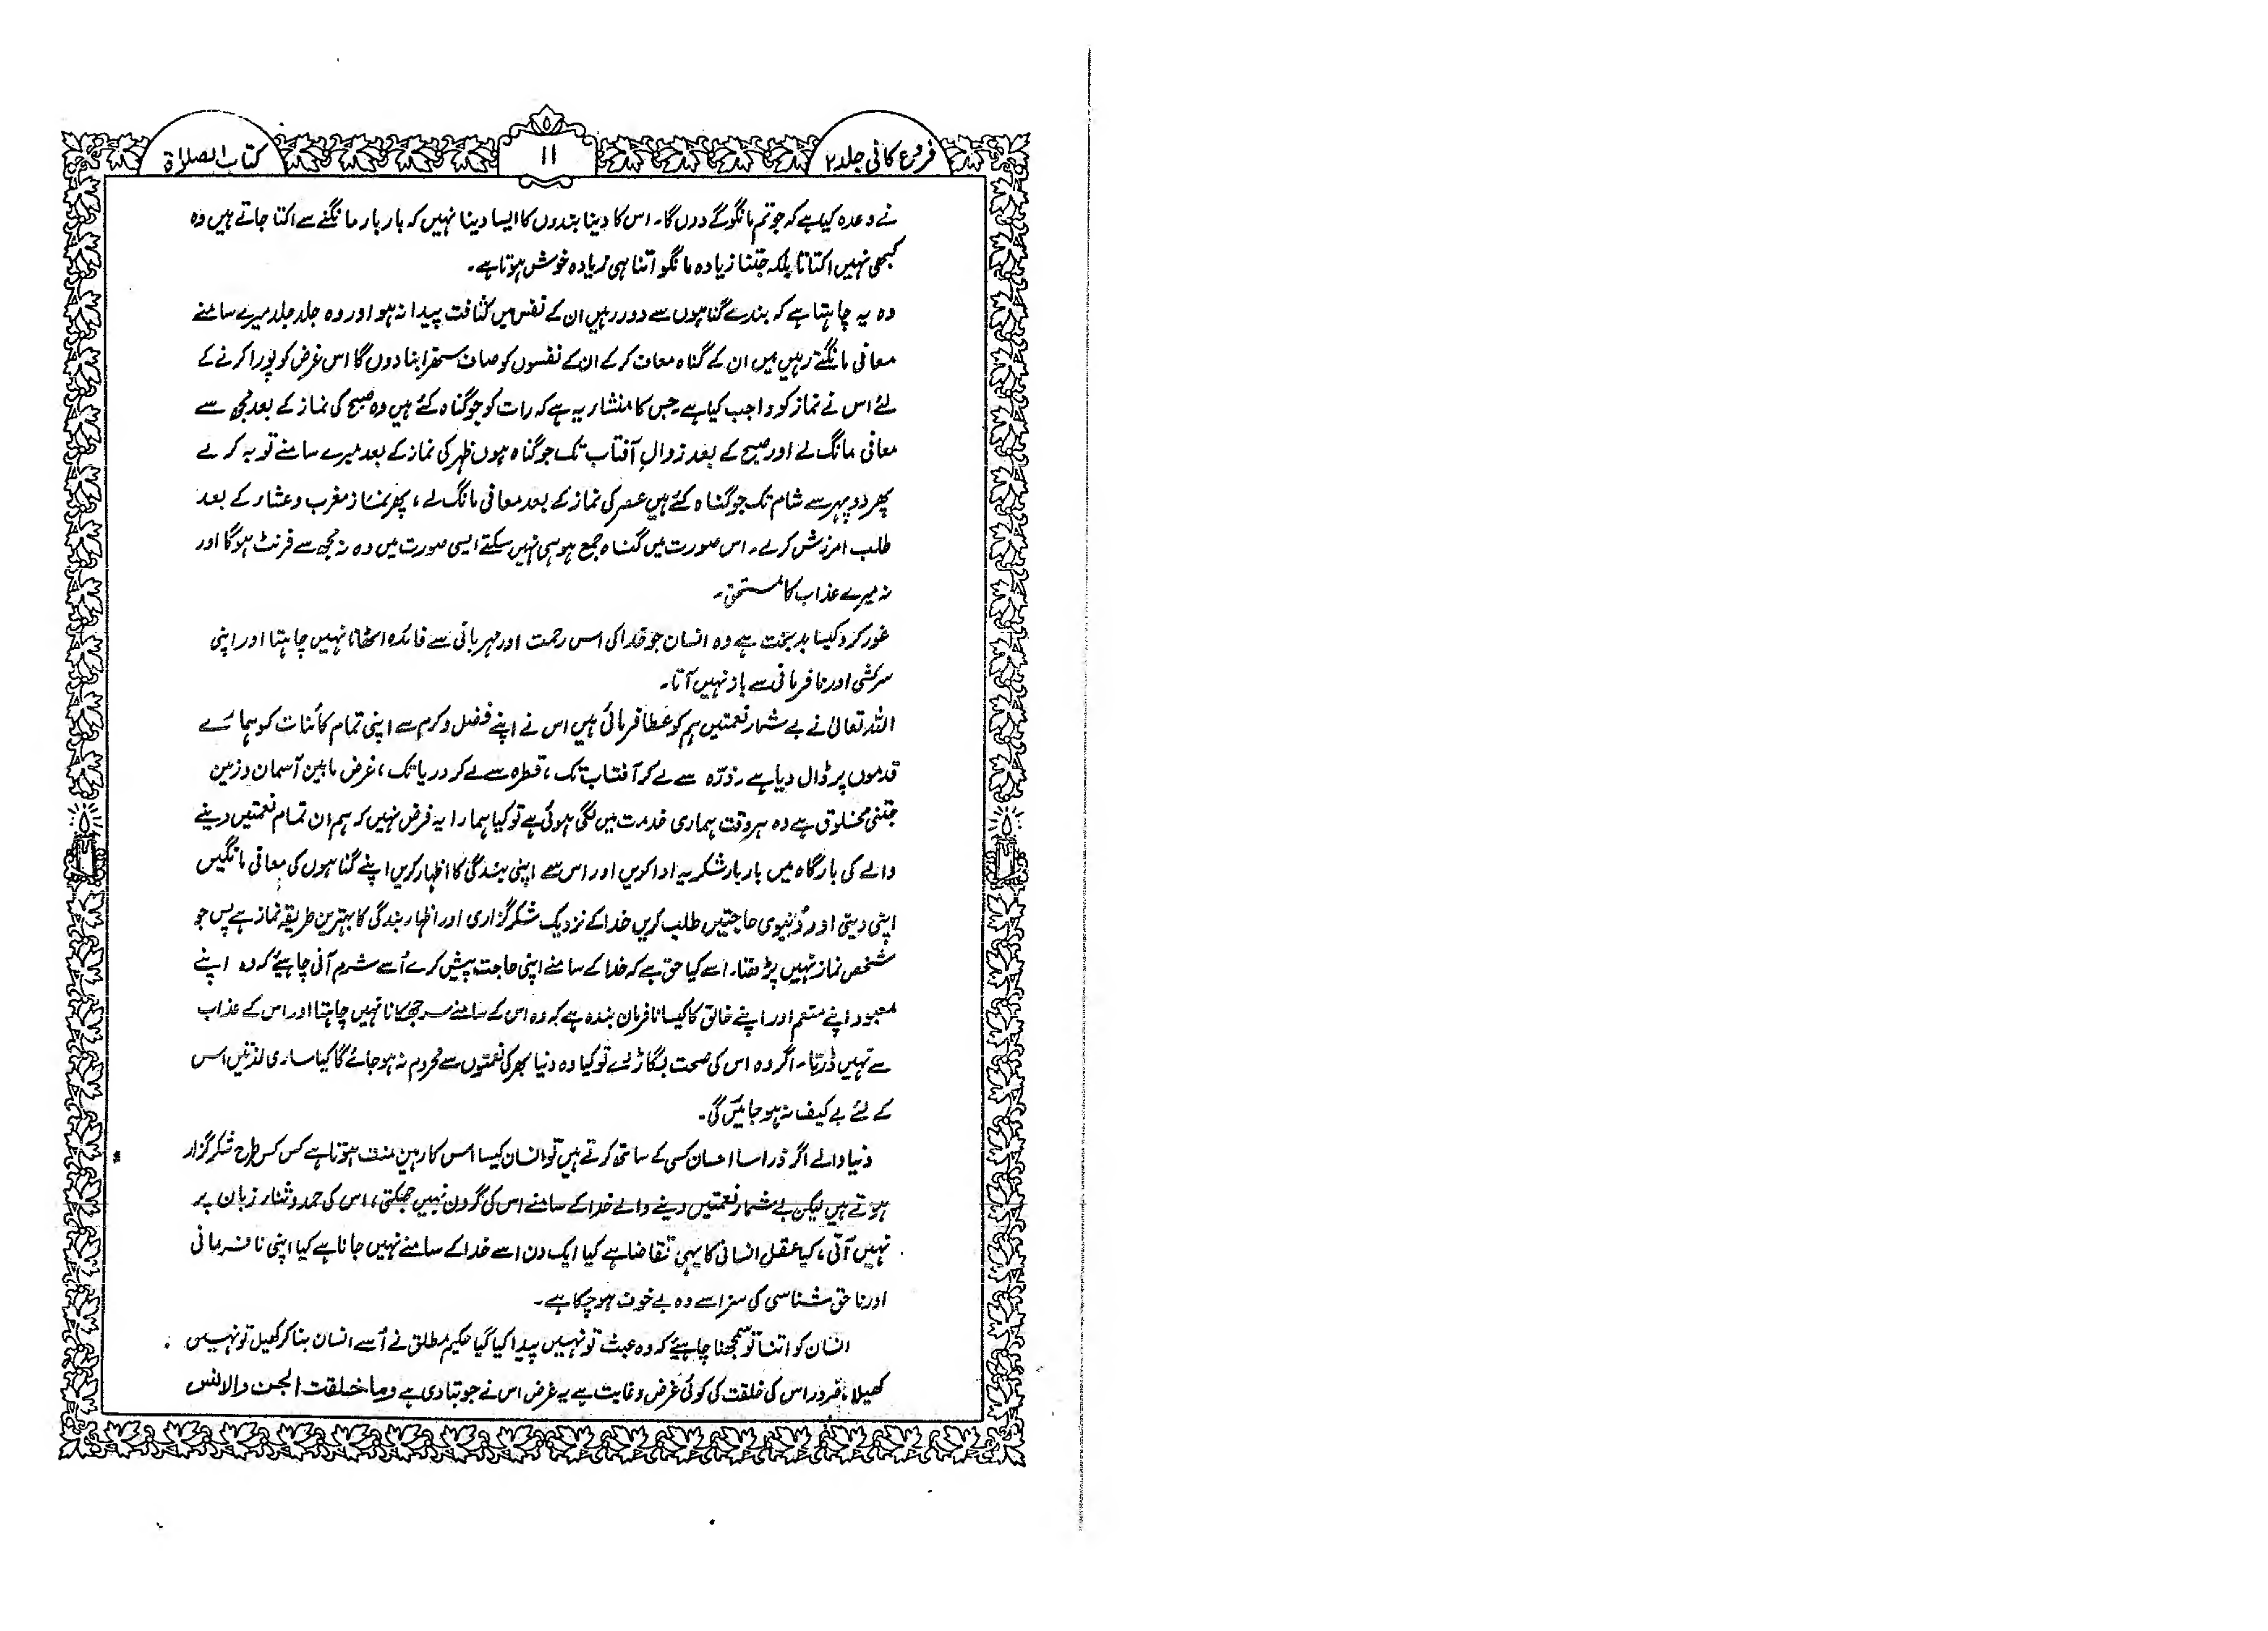 فروع کافی جلد ۲
۱۱
کتاب الصلاۃ
نے وعدہ کیا ہے کہ جو تم مانگو گے دوں گا۔ اس کا دینا بندوں کا ایسا دینا نہیں کہ بار بار مانگنے سے اکتا جاتے ہیں وہ
کبھی نہیں اکتاتا بلکہ جتنا زیادہ مانگو اتنا ہی زیادہ خوش ہوتا ہے۔
وہ یہ چاہتا ہے کہ بندے گناہوں سے دور رہیں ان کے نفس میں کثافت پیدا نہ ہو اور وہ جلد جلد میرے سامنے
معافی مانگتے رہیں میں ان کے گناہ معاف کر کے ان کے نفسوں کو صاف ستھرا بنا دوں گا اس غرض کو پورا کرنے کے
لئے اس نے نماز کو واجب کیا ہے جس کا منشار یہ ہے کہ رات کو جو گناہ کئے ہیں وہ صبح کی نماز کے بعد مجھ سے
معافی مانگ لے اور صبح کے بعد زوالِ آفتاب تک جو گناہ ہوں ظہر کی نماز کے بعد میرے سامنے توبہ کر لے
پھر دوپہر سے شام تک جو گناہ کئے ہیں عصر کی نماز کے بعد معافی مانگ لے، پھر نماز مغرب و عشار کے بعد
طلب امرزش کرلے۔ اس صورت میں گناہ جمع ہو ہی نہیں سکتے ایسی صورت میں وہ نہ مجھ سے فرنٹ ہوگا اور
نہ میرے عذاب کا مستحق۔
غور کرو کیسا بدبخت ہے وہ انسان جو خدا کی اس رحمت اور مہربانی سے فائدہ اٹھانا نہیں چاہتا اور اپنی
سرکشی اور نافرمانی سے باز نہیں آتا۔
اللہ تعالیٰ نے بے شمار نعمتیں ہم کو عطا فرمائی ہیں اس نے اپنے فضل و کرم سے اپنی تمام کائنات کو ہمارے
قدموں پر ڈال دیا ہے۔ ذرّہ سے لے کر آفتاب تک، قطرہ سے لے کر دریا تک، غرض مابین آسمان و زمین
جتنی مخلوق ہے وہ ہر وقت ہماری خدمت میں لگی ہوئی ہے تو کیا ہمارا یہ فرض نہیں کہ ہم ان تمام نعمتیں دینے
والے کی بارگاہ میں بار بار شکریہ ادا کریں اور اس سے اپنی بندگی کا اظہار کریں اپنے گناہوں کی معافی مانگیں
اپنی دینی اور دُنیوی حاجتیں طلب کریں خدا کے نزدیک شکر گزاری اور اظہار بندگی کا بہترین طریقہ نماز ہے پس جو
شخص نماز نہیں پڑھتا۔ اسے کیا حق ہے کہ خدا کے سامنے اپنی حاجت پیش کرے اُسے شرم آنی چاہیئے کہ وہ اپنے
معبود اپنے منعم اور اپنے خالق کا کیسا نافرمان بندہ ہے کہ وہ اس کے سامنے سر جھکانا نہیں چاہتا اور اس کے عذاب
سے نہیں ڈرتا۔ اگر وہ اس کی صحت بگاڑ لے تو کیا وہ دنیا بھر کی نعمتوں سے محروم نہ ہو جائے گا کیا ساری لذتیں اس
کے لئے بے کیف نہ ہو جائیں گی۔
دنیا والے اگر ذرا سا احسان کسی کے ساتھ کرتے ہیں تو انسان کیسا اس کا رہین منت ہوتا ہے کس کس طرح شکر گزار
ہوتے ہیں لیکن بے شمار نعمتیں دینے والے خدا کے سامنے اس کی گردن نہیں جھکتی، اس کی حمد و ثنار زبان پر
نہیں آتی، کیا عقل انسانی کا یہی تقاضا ہے کیا ایک دن اسے خدا کے سامنے نہیں جانا ہے کیا اپنی نافرمانی
اور ناحق شناسی کی سزا سے وہ بے خوف ہو چکا ہے۔
انسان کو اتنا تو سمجھنا چاہیئے کہ وہ عبث تو نہیں پیدا کیا گیا حکیم مطلق نے اُسے انسان بنا کر کھیل تو نہیں
کھیلا، ضرور اس کی خلقت کی کوئی غرض و غایت ہے یہ غرض اس نے جو بتا دی ہے وما خلقت الجن والانس